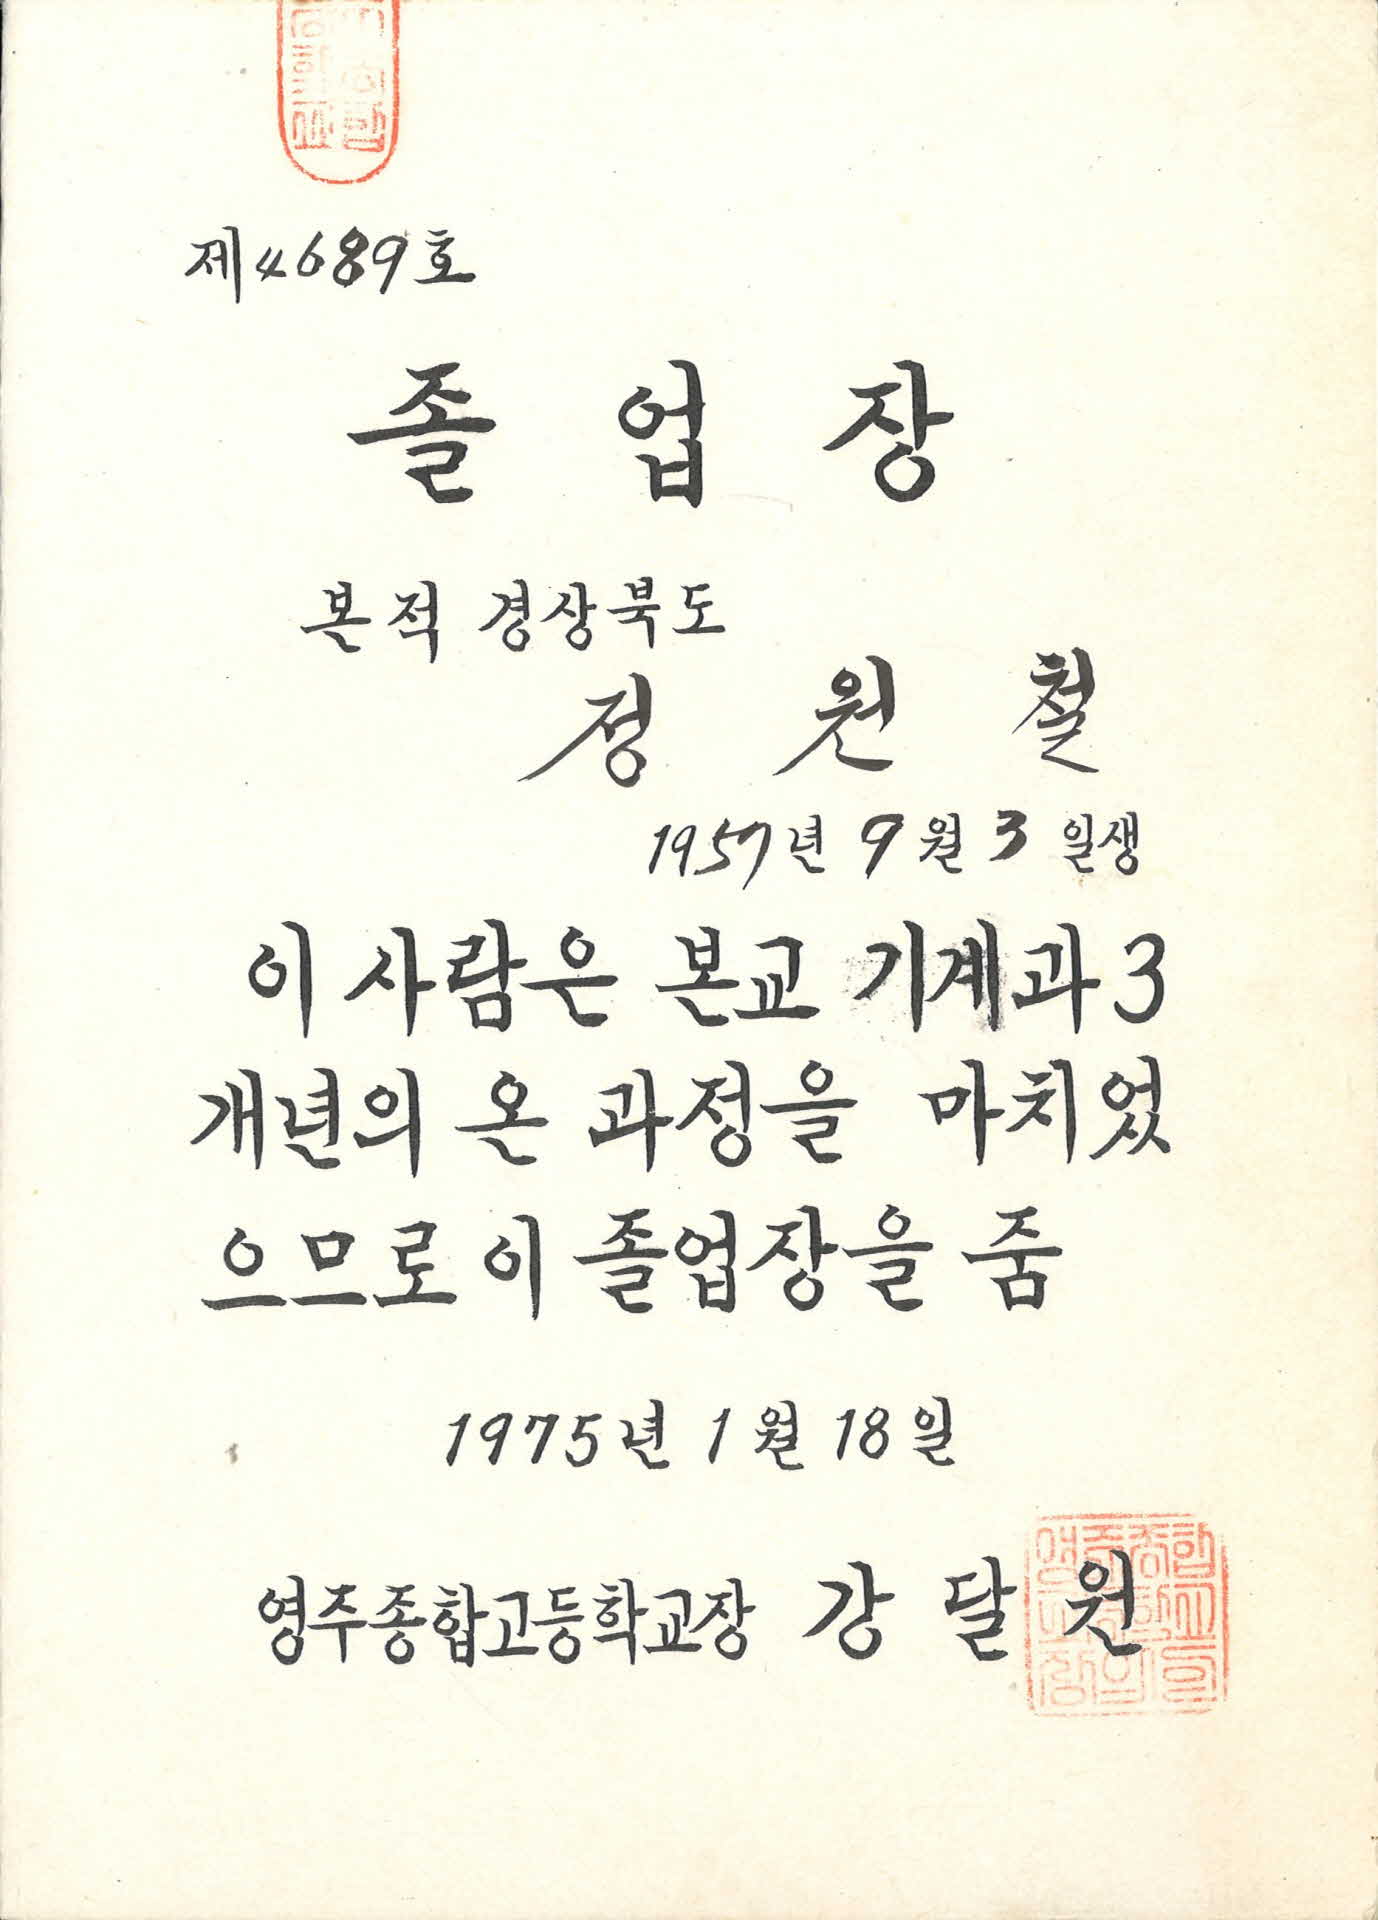 제4689호
졸업장
본적 경상북도
정 원 철
1957년 9월 3일생
이 사람은 본교 기계과 3
개년의 온 과정을 마치었
으므로 이 졸업장을 줌
1975년 1월 18일
영주종합고등학교장 강달원